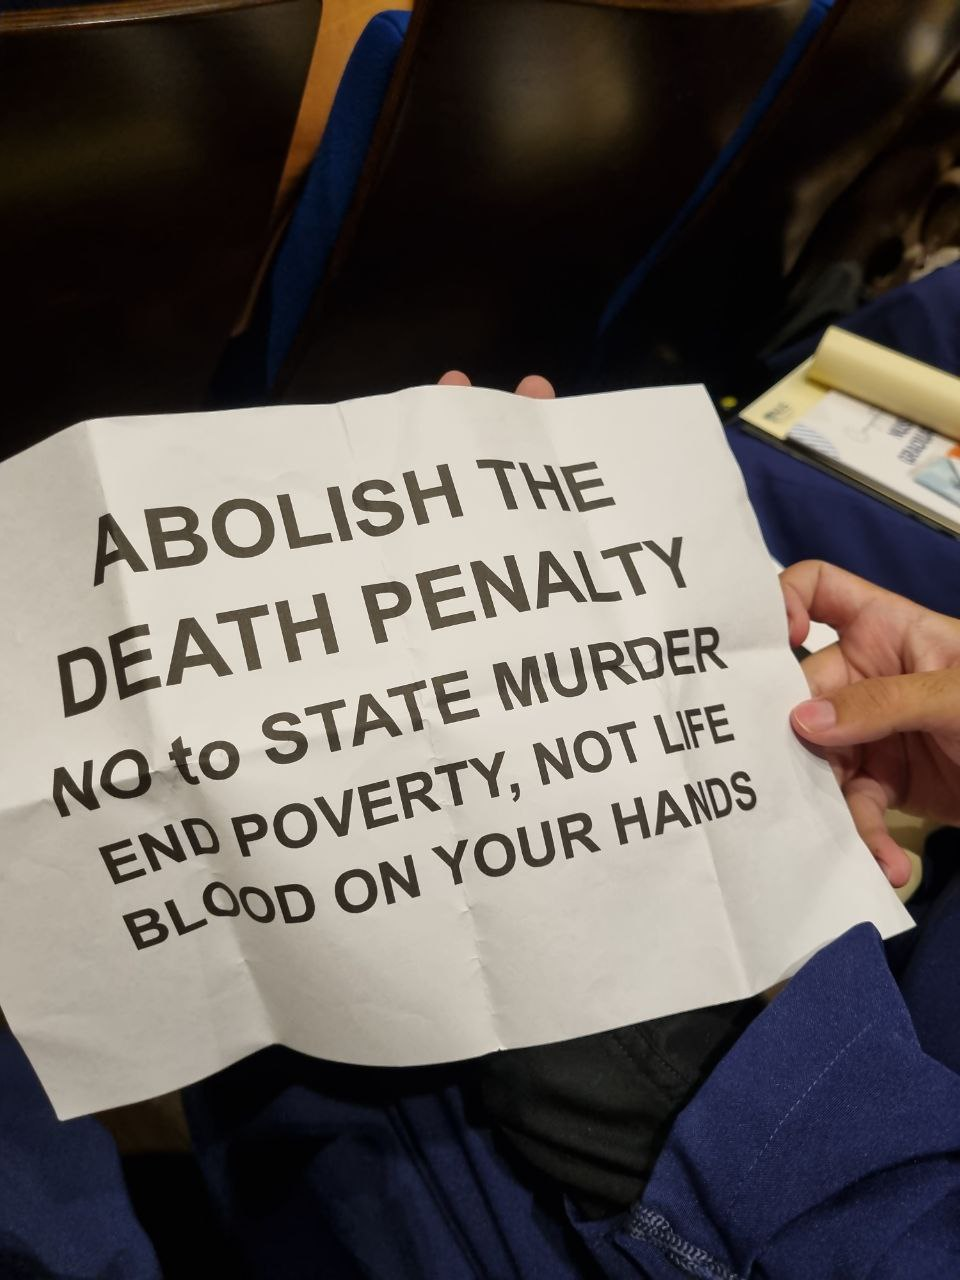 ABOLISH THE
DEATH PENALTY
NO to STATE MURDER
END POVERTY, NOT LIFE
BLOOD ON YOUR HANDS